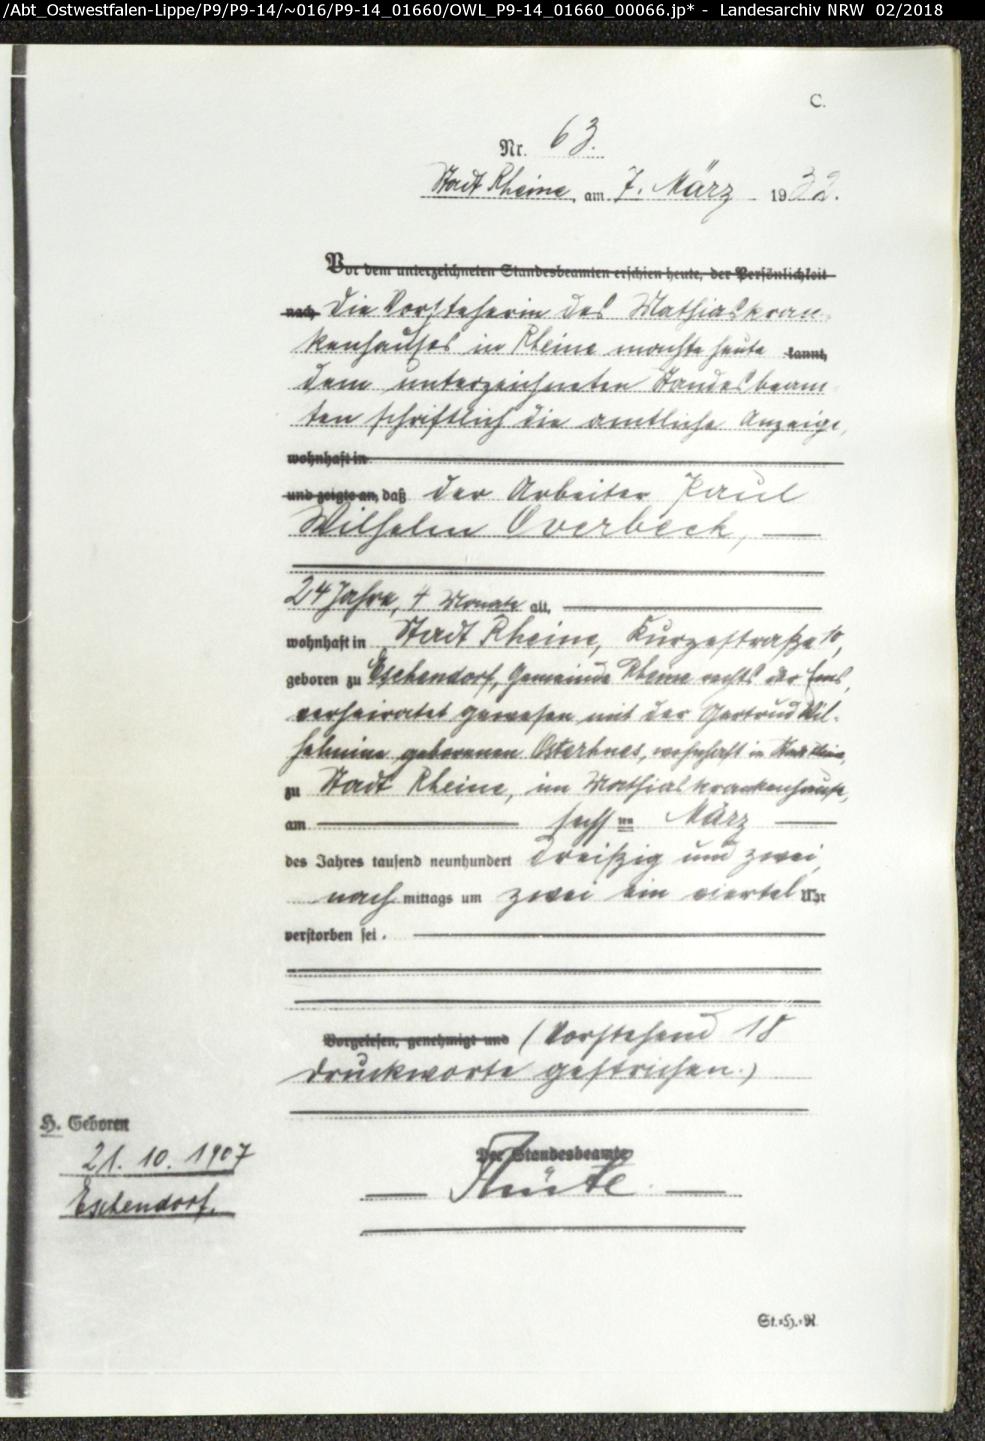 /Abt_Ostwestfalen-Lippe/P9/P9-14/~016/P9-14_01660/OWL_P9-14_01660_00066.jp* - Landesarchiv NRW 02/2018
C.
Nr. 63.
Stadt Rheine, am 7. März 1932.
Vor dem unterzeichneten Standesbeamten erschien heute, der Persönlichkeit
nach die Vorsteherin des Mathiaskran-
kenhauses in Rheine machte heute kannt,
dem unterzeichneten Standesbeam-
ten schriftlich die amtliche Anzeige,
wohnhaft in
und zeigte an, daß der Arbeiter Paul
Wilhelm Overbeck,
24 Jahre, 4 Monate alt,
wohnhaft in Stadt Rheine, Kurzestraße 10,
geboren zu Eschendorf, Gemeinde Rheine rechts der Ems,
verheiratet gewesen mit der Gertrud Wil-
helmine geborenen wohnhaft in Stadt Rheine,
zu Stadt Rheine, im Mathiaskrankenhause,
am sechsten März
des Jahres tausend neunhundert dreißig und zwei,
nachmittags um zwei ein viertel Uhr
verstorben sei.
Vorgelesen, genehmigt und (Vorstehend 18
Druckworte gestrichen.)
Der Standesbeamte
H. Geboren
21. 10. 1907
Eschendorf.
St.=H.=R.